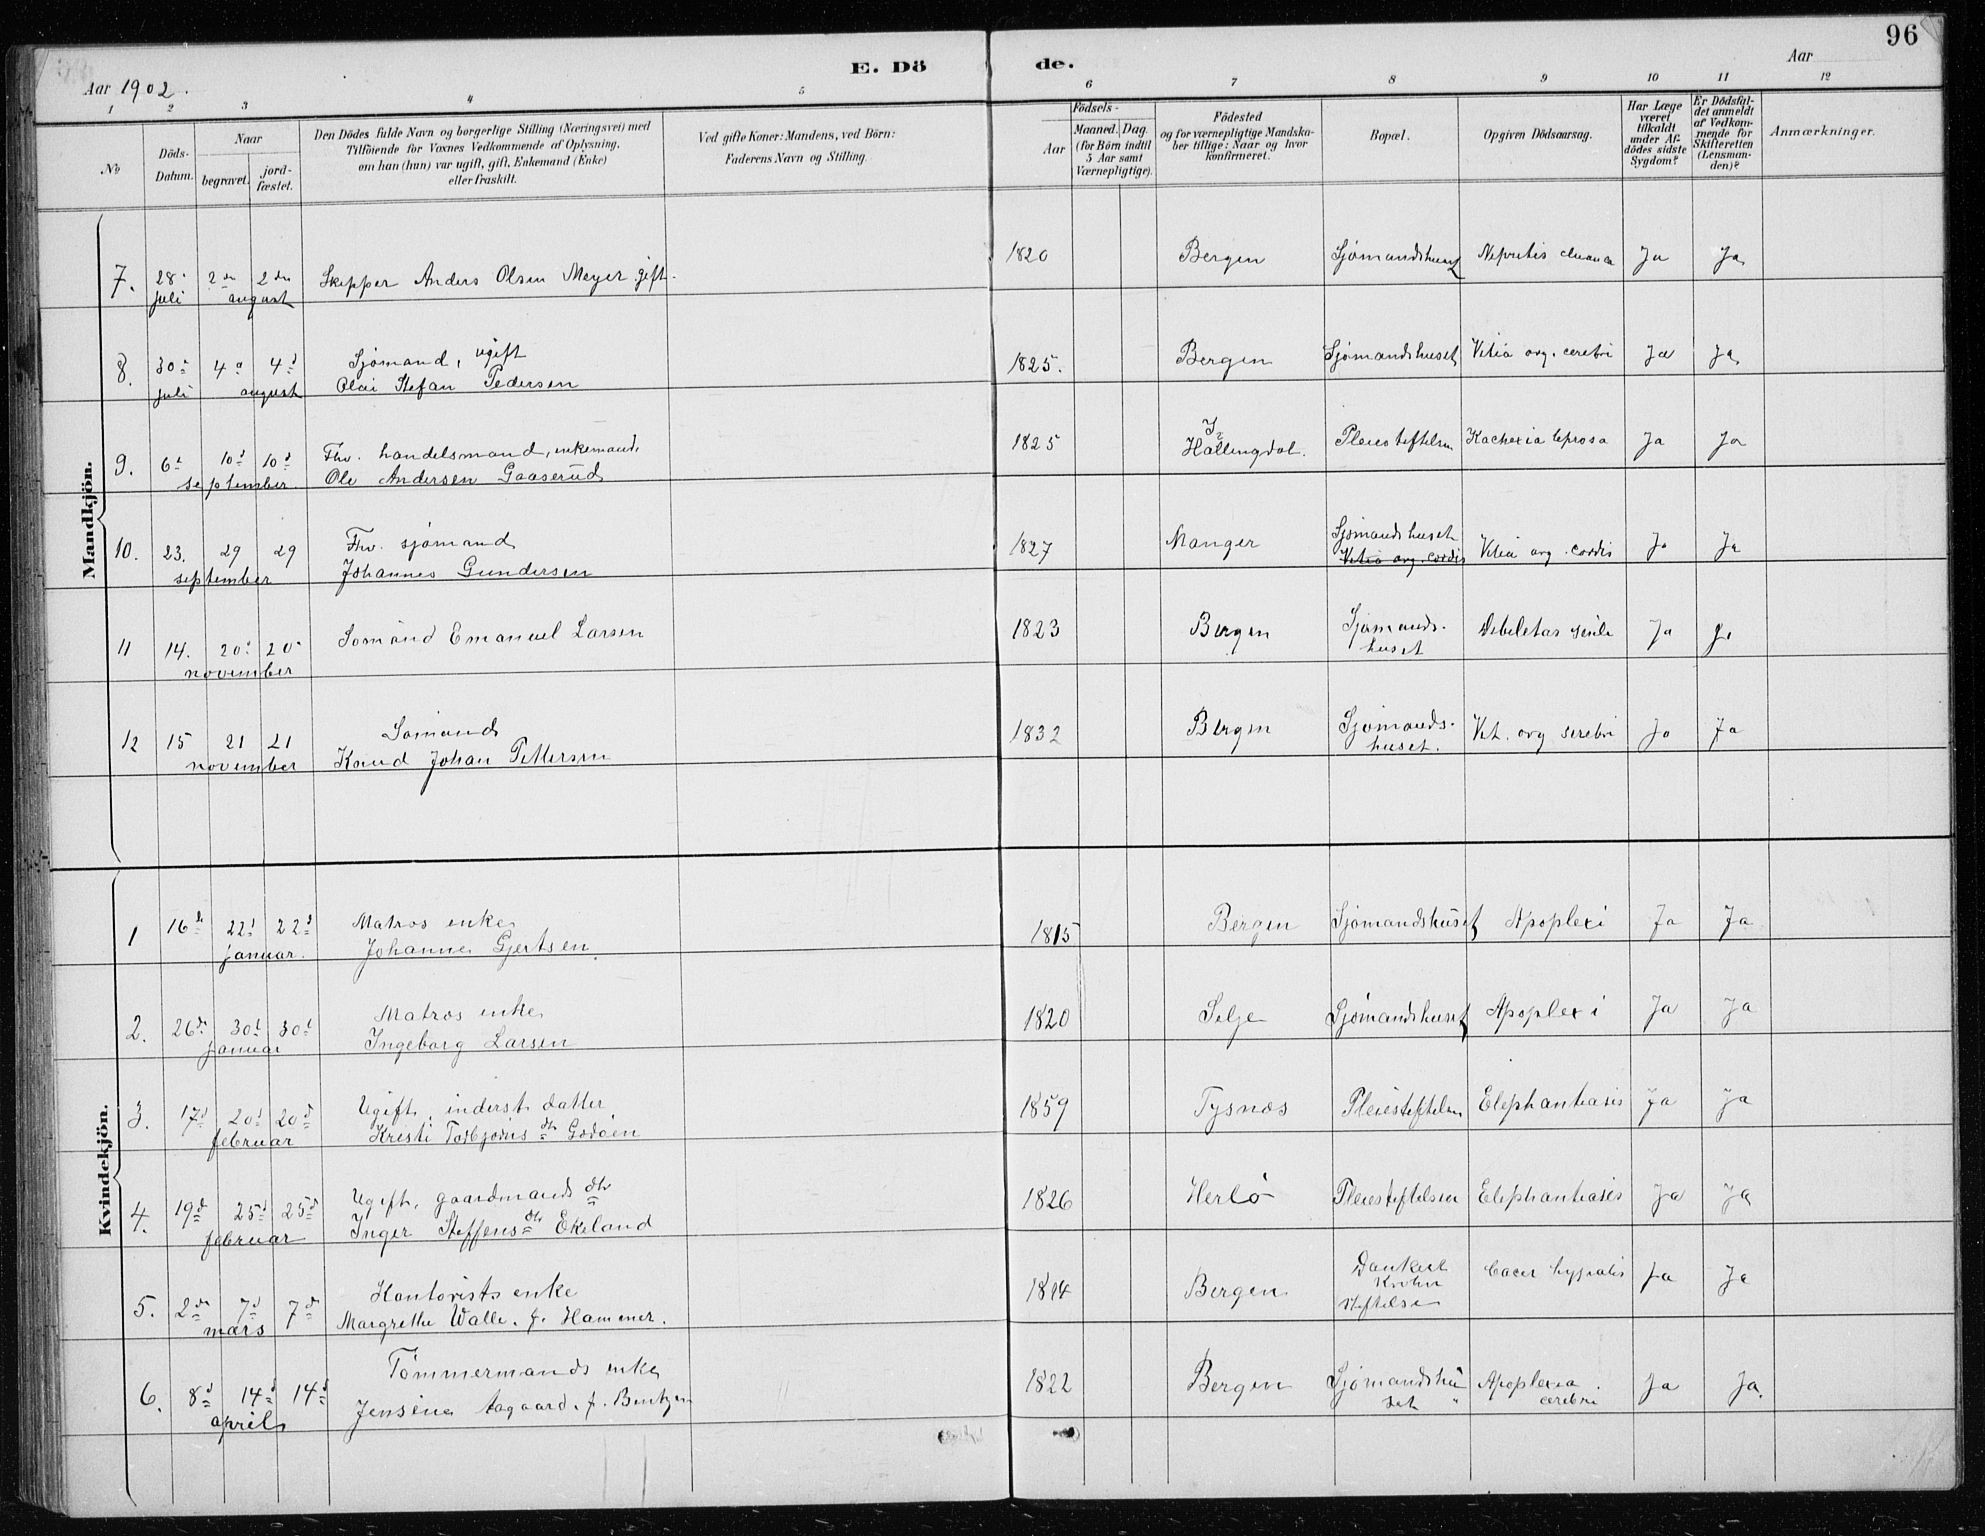 96
E. Dö de.
Aar 1902.
Aar
1 2 3 4 5 6 7 8 9 10 11 12
No
Döds-Datum.
Naar
begravet.
jord-fæstet.
Den Dödes fulde Navn og borgerlige Stilling (Næringsvei) med
Tilföiende for Voxnes Vedkommende af Oplysning,
om han (hun) var ugift, gift, Enkemand (Enke)
eller fraskilt.
Ved gifte Koner: Mandens, ved Börn:
Faderens Navn og Stilling.
Födsels-
Aar
Maaned. Dag.
(for Börn indtil
5 Aar samt
Værnepligtige).
Födested
og for værnepligtige Mandska-
ber tillige: Naar og hvor
konfirmeret.
Bopæl.
Opgiven Dödsaarsag.
Har Læge
været
tilkaldt
under Af-
dødes sidste
Sygdom?
Er Dödsfal-
det anmeldt
af Vedkom-
mende for
Skifteretten
(Lensman-
den)?
Anmærkninger.
Mandkjön.
7. 28. juli 2den 2den august Skipper Anders Olsen Meyer gift. 1820 Bergen Sjømandshuset Ja Ja
8. 30. juli 4d 4d august Sjømand, ugift
Olai Stefan Pedersen 1825. Bergen Sjømandshuset Vitia org. cerebri Ja Ja
9. 6d 10d 10d september Fhv. handelsmand, enkemand,
Ole Andersen Gaaserud 1825 I Hallingdal. Pleiestiftelsen Kachexia leprosa Ja Ja
10. 23. 29 29 september Fhv. sjømand
Johannes Gundersen 1827 Manger Sjømandshuset
Vitia org. cordis Vitia org. cordis Ja Ja
11 14. 20. 20. november Sømand Emanuel Larsen 1823 Bergen Sjømands-
huset Debiletas senile Ja Ja
12 15 21 21 november Sømand
Knud Johan Pettersen 1832 Bergen Sjømands-
huset. Vit. org serebri Ja Ja
Kvindekjön.
1 16de 22d 22d januar. Matros enke
Johanne Gjertsen. 1815 Bergen Sjømandshuset Apoplexi Ja Ja
2. 26de 30d 30d januar Matros enke
Ingeborg Larsen 1820 Selje Sjømandshuset Apoplexi Ja Ja
3. 17d 20d 20d februar Ugift, inderst datter
Kristi Torbjørns dtr Godøen 1859 Tysnæs Pleiestiftelsen Elephantiasis Ja Ja
4. 19d 25d 25d februar Ugift, gaardmands dtr
Inger Steffens dtr Ekeland 1826 Herlø Pleiestiftelsen Elephantiasis Ja Ja
5. 2den 7d 7d mars Kontorists enke
Margrethe Walle. f. Hammer. 1814 Bergen Dankert
Krohn
Stiftelse Cacer hypatis Ja Ja
6. 8d 14d 14d april Tømmermands enke
Jensine Aagaard. f. Bentzen 1822 Bergen Sjømandshu
set Apoplexia
cerebri Ja Ja.